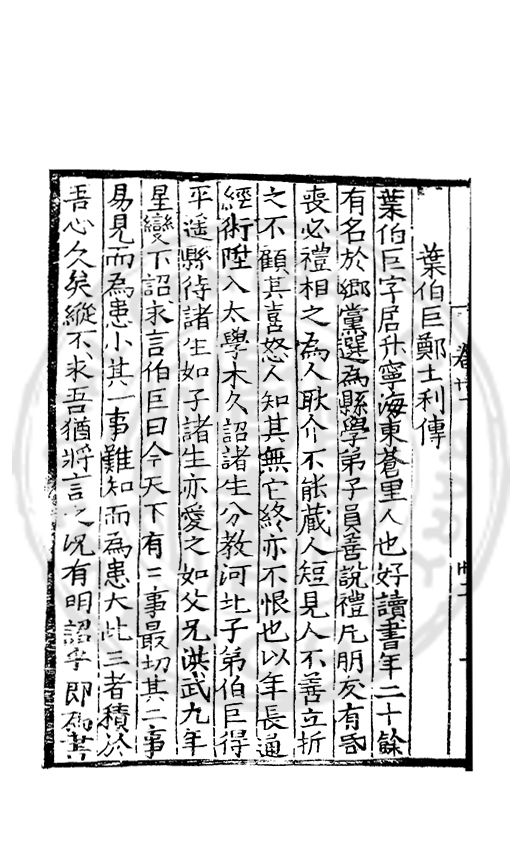 葉伯巨鄭士利傳
葉伯巨字居升寧海東蒼里人也好讀書年二十餘
有名於鄉黨選為縣學弟子員善說禮凡朋友有昏
喪必禮相之為人耿介不能藏人短見人不善立折
之不顧其喜怒人知其無它終亦不恨也以年長通
經術陞入太學未久詔諸生分教河北子弟伯巨得
平遥縣待諸生如子諸生亦愛之如父兄洪武九年
星變下詔求言伯巨曰今天下有三事最切其二事
易見而為患小其一事難知而為患大此三者積於
吾心久矣縱不求吾猶將言之况有明詔乎即為書
卷廿一